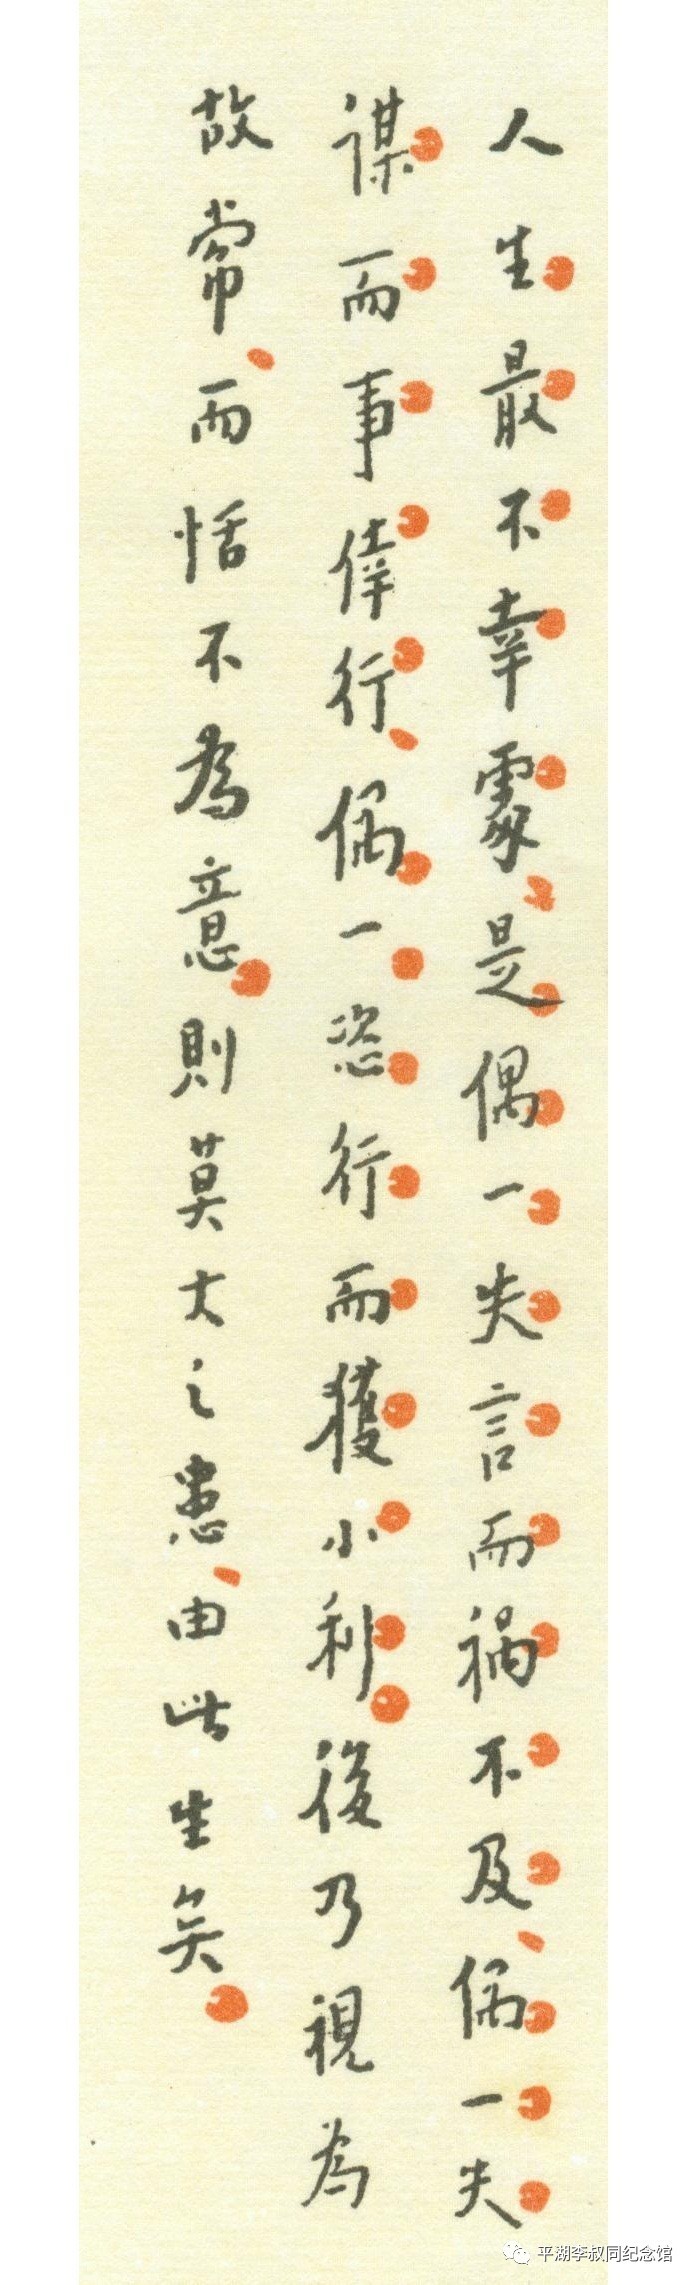 人生最不幸處、是偶一失言而祸不及、偶一失
謀而事倖行、偶一恣行而獲小利。後乃視為
故常、而恬不為意。則莫大之患、由此生矣。
平湖李叔同纪念馆